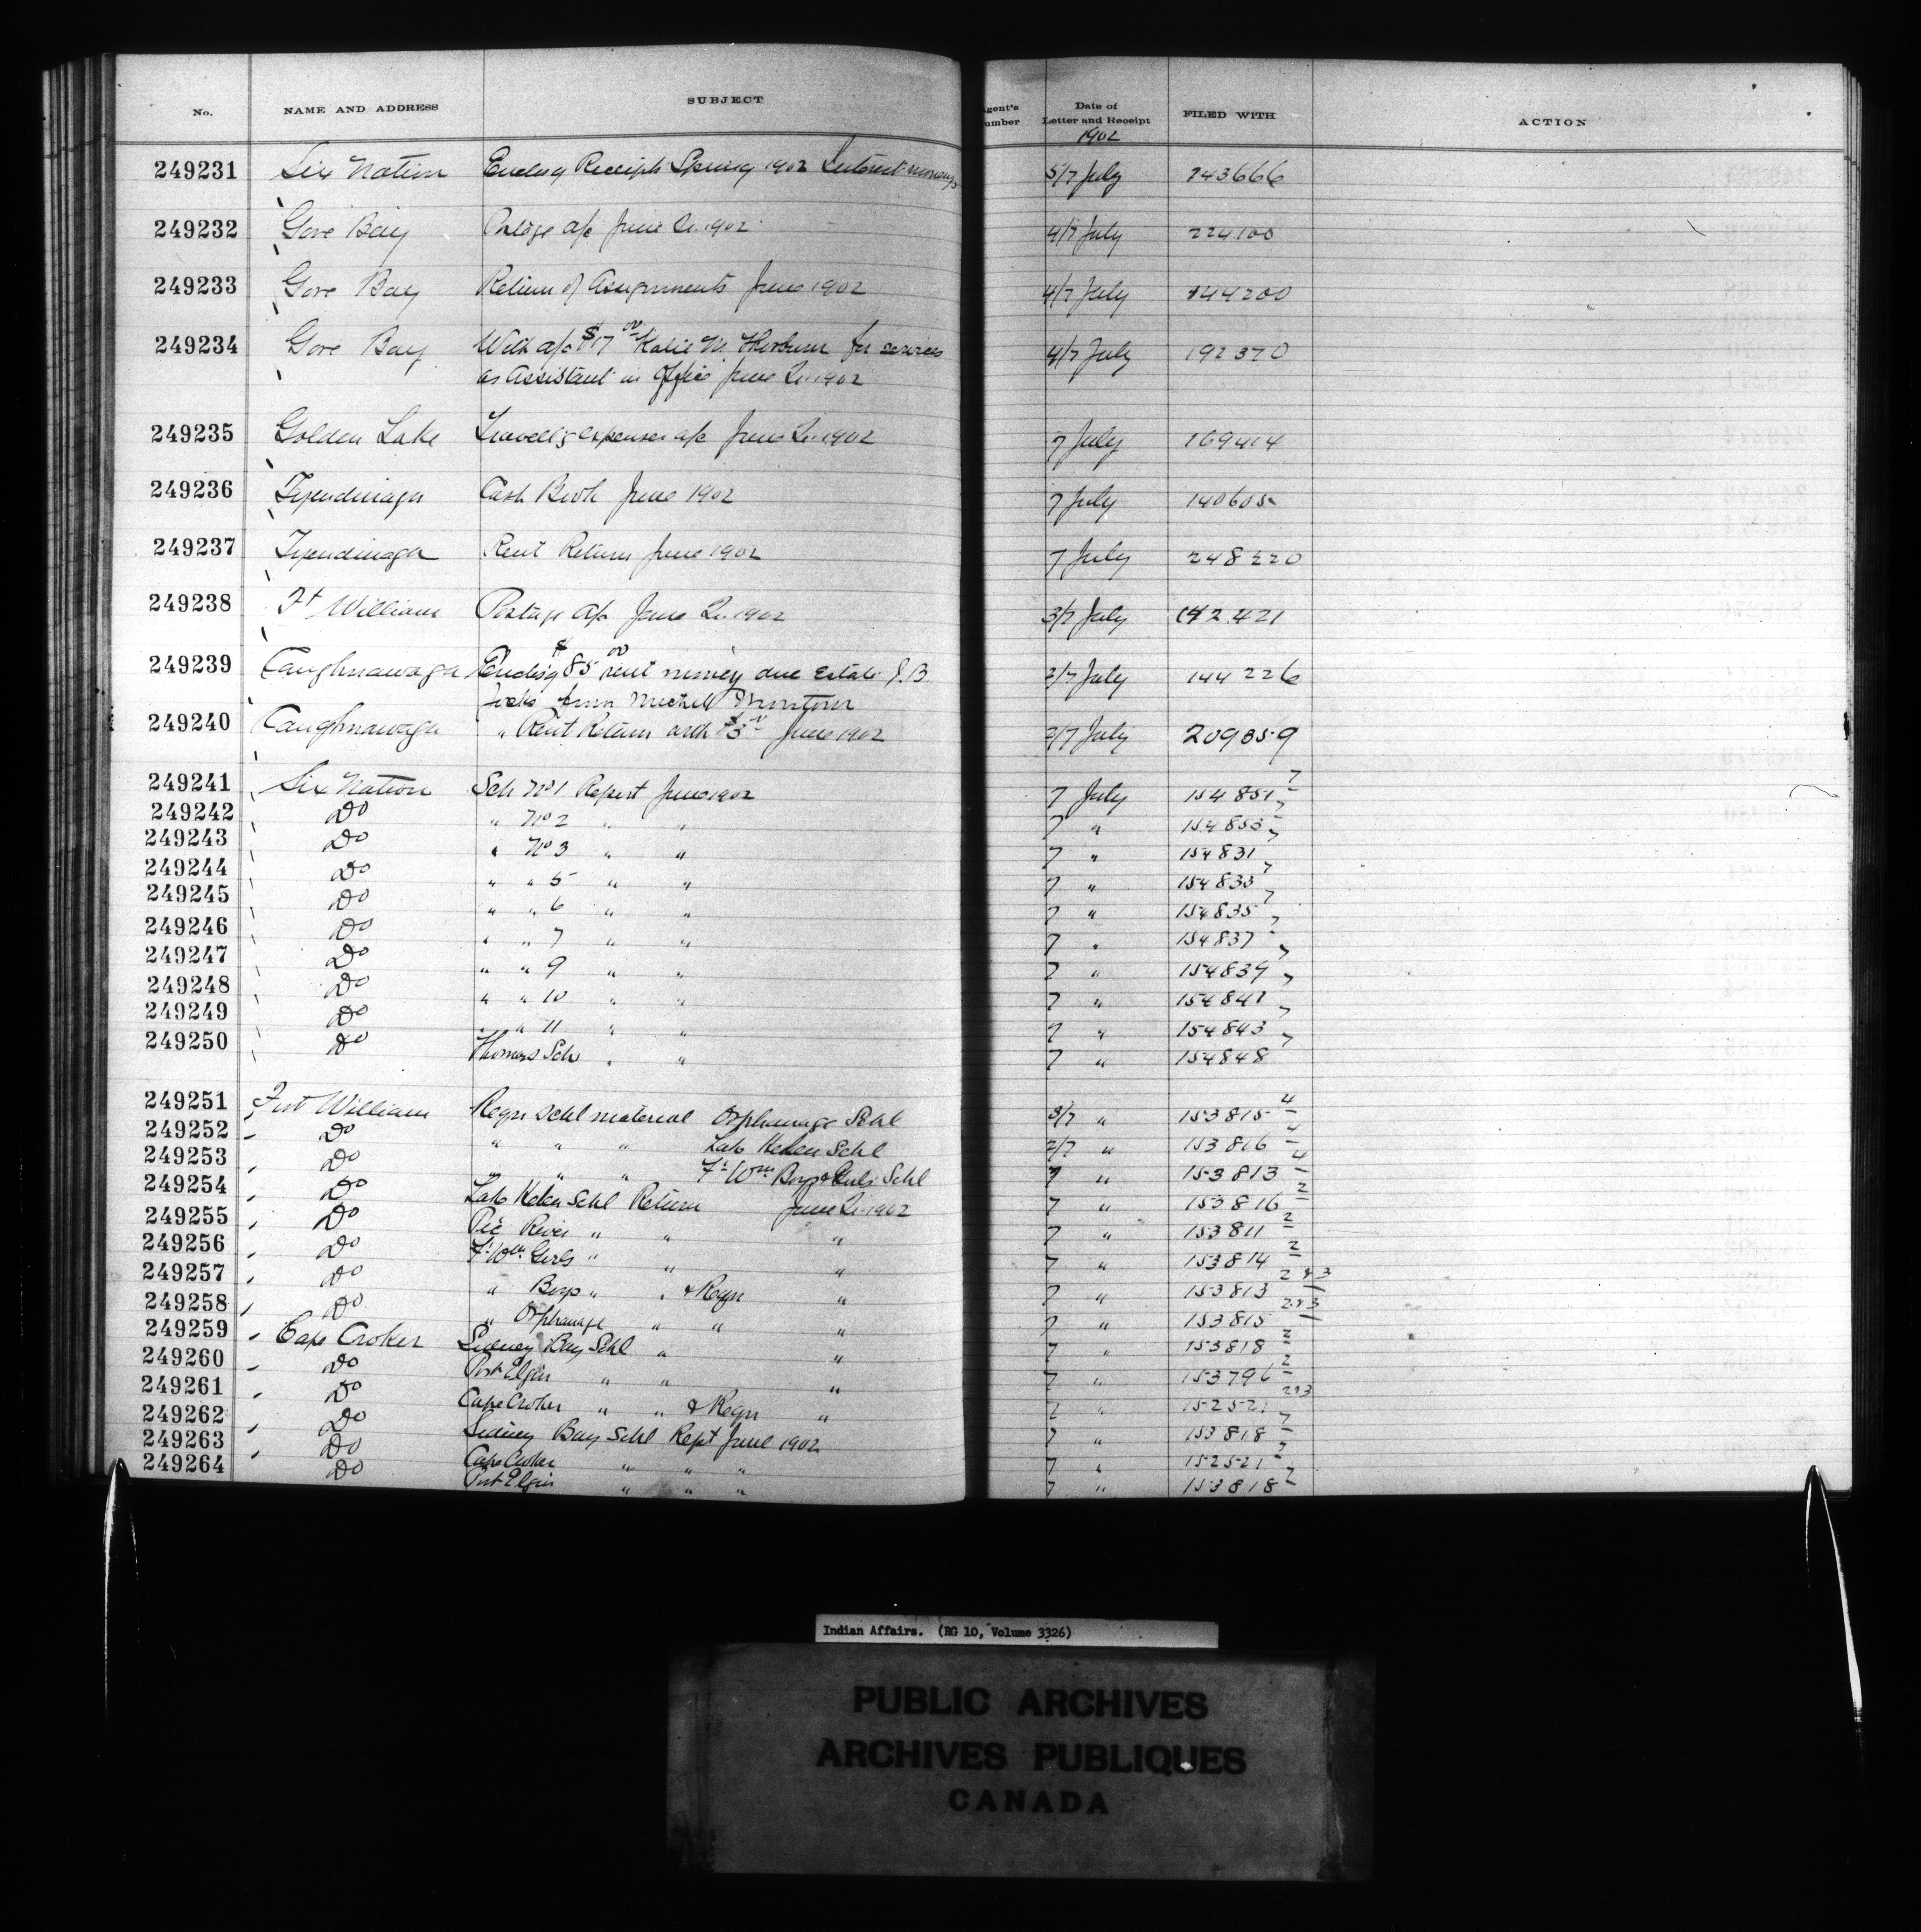 No. NAME AND ADDRESS SUBJECT gent's umber Date of Letter and Receipt FILED WITH ACTION
1902
249231 Six Nation Enclosg Receipts Spring 1902 Interest moneys 5/7 July 243666
249232 Gore Bay Postage a/c June Qr. 1902 4/7 July 224100
249233 Gore Bay Return of Assignments June 1902 4/7 July 144200
249234 Gore Bay With a/c $17 00 Katie M. Thorburn for services 4/7 July 192370
as Assistant in Office June Qr. 1902
249235 Golden Lake Travellg expenses a/c June Qr. 1902 7 July 169414
249236 Tyendinaga Cash Book June 1902 7 July 140605
249237 Tyendinaga Rent Return June 1902 7 July 248220
249238 Ft William Postage a/c June Qr. 1902 3/7 July 142421
249239 Caughnawaga Enclosg $85 00 rent money due Estate J.B. 2/7 July 144226
from Michell Montour
249240 Caughnawaga " Rent Return with $3 June 1902 2/7 July 209859
249241 Six Nation Sch No 1 Report June 1902 7 July 154851 7
249242 Do " No 2 " " 7 " 154853 7
249243 Do " No 3 " " 7 " 154831 7
249244 Do " " 5 " " 7 " 154833 7
249245 Do " " 6 " " 7 " 154835 7
249246 Do " " 7 " " 7 " 154837 7
249247 Do " " 9 " " 7 " 154839 7
249248 Do " " 10 " " 7 " 154841 7
249249 Do " " 11 " " 7 " 154843 7
249250 Do Thomas Sch " " 7 " 154848
249251 Fort William Reqn Schl material Orphanage Schl 3/7 " 153815 4
249252 Do " " " Lake Helen Schl 2/7 " 153816 4
249253 Do " " " Ft Wm Boys & Girls Schl 7 " 153813 4
249254 Do Lake Helen Schl Return June Qr. 1902 7 " 153816 2
249255 Do Pic River " " " 7 " 153811 2
249256 Do Ft Wm Girls " " " 7 " 153814 2
249257 Do " Boys " " & Reqn " 7 " 153813 2 & 3
249258 Do " Orphanage " " " 7 " 153815 2 & 3
249259 Cape Croker Sidney Bay Schl " " 7 " 153818 2
249260 Do Port Elgin " " " 7 " 153796 2
249261 Do Cape Croker " " & Reqn " 7 " 152521 2 & 3
249262 Do Sidney Bay Schl Rept June 1902 7 " 153818 7
249263 Do Cape Croker " " " 7 " 152521 7
249264 Do Port Elgin " " " 7 " 153818 7
Indian Affairs. (RG 10, Volume 3326)
PUBLIC ARCHIVES
ARCHIVES PUBLIQUES
CANADA